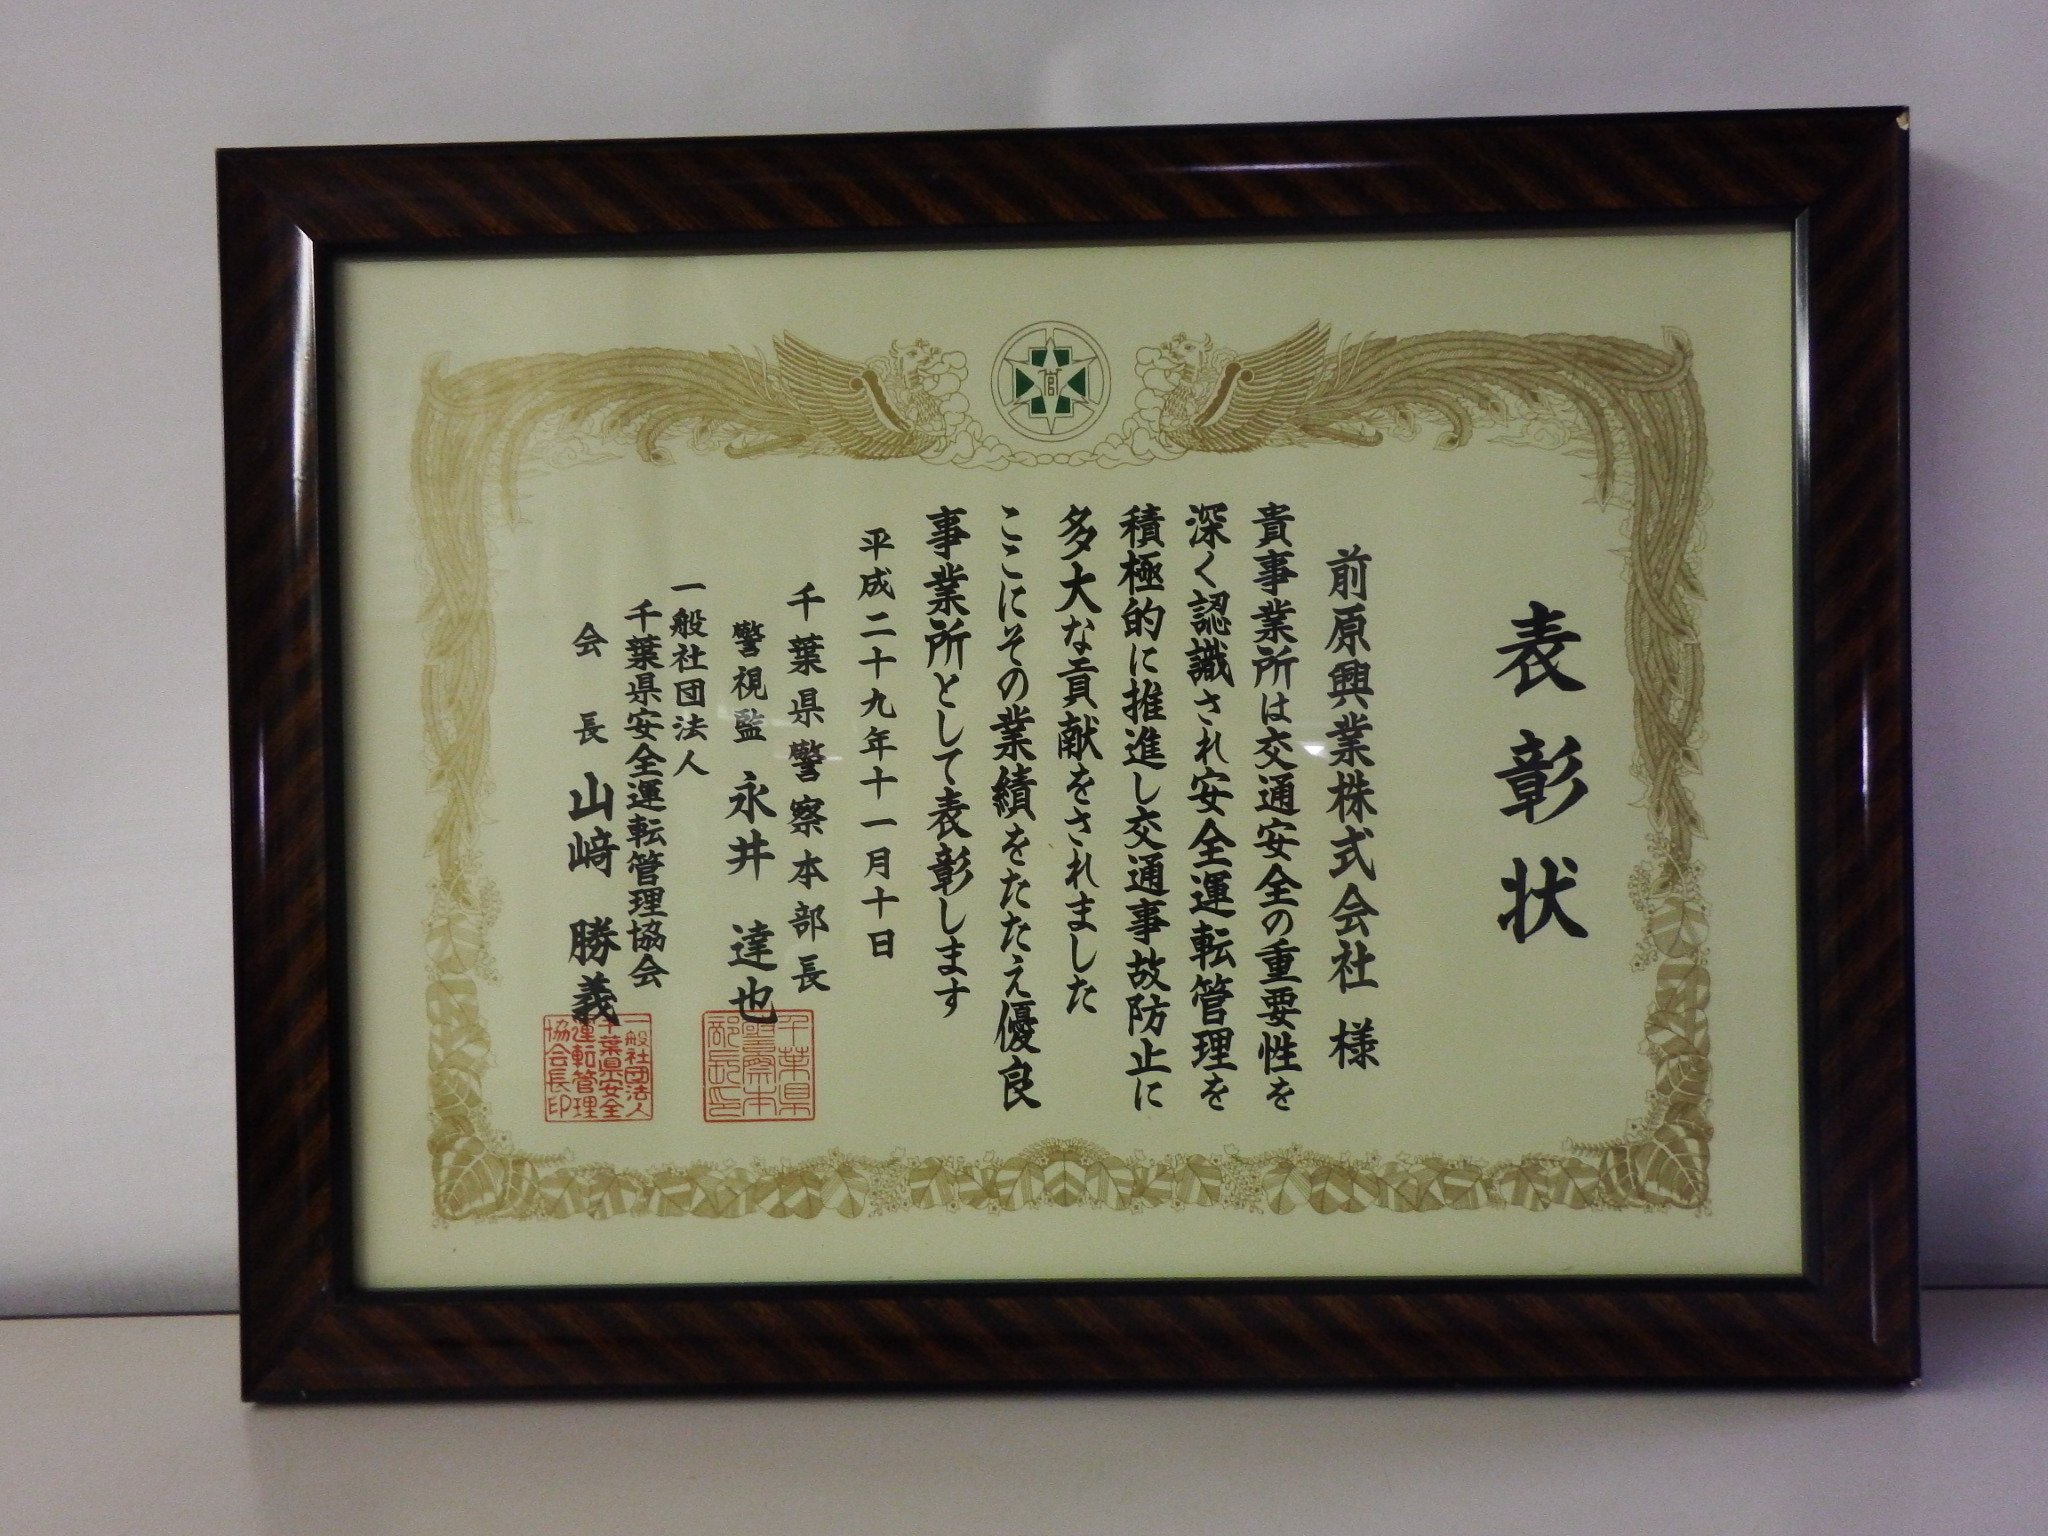 表彰状
前原興業株式会社 様
貴事業所は交通安全の重要性を
深く認識され安全運転管理を
積極的に推進し交通事故防止に
多大な貢献をされました
ここにその業績をたたえ優良
事業所として表彰します
平成二十九年十一月十日
千葉県警察本部長
警視監 永井 達也
千葉県警察本部長印
一般社団法人
千葉県安全運転管理協会
会長 山﨑 勝義
一般社団法人千葉県安全運転管理協会長印